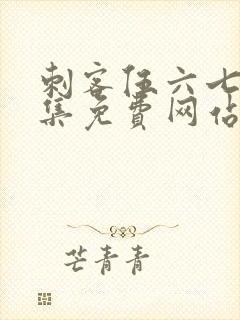 刺客伍六七
集免費网佔
芒青青